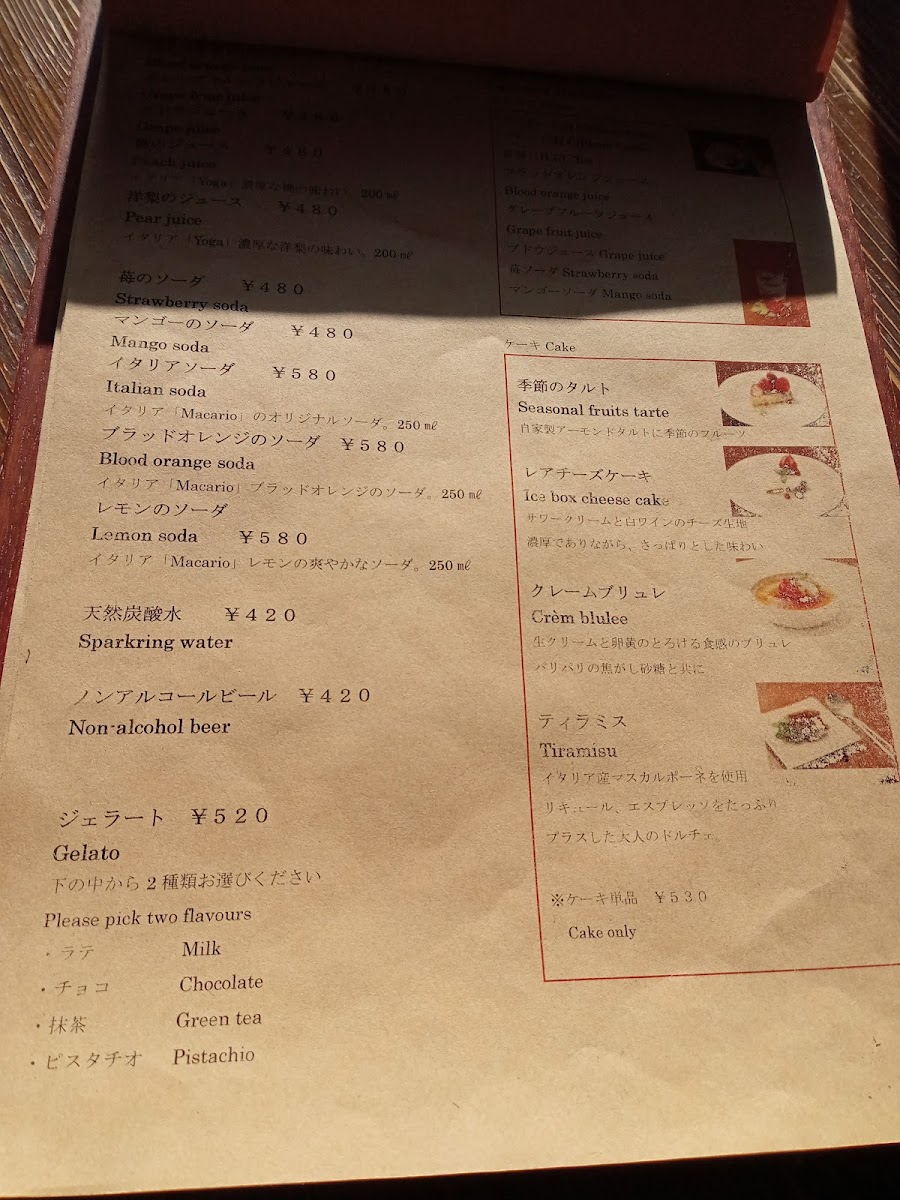 Grape fruit juice
Grape juice
¥480
Peach juice
イタリア「Yoga」濃厚な桃の味わい、200㎖
洋梨のジュース ¥480
Pear juice
イタリア「Yoga」濃厚な洋梨の味わい、200㎖
苺のソーダ ¥480
Strawberry soda
マンゴーのソーダ ¥480
Mango soda
イタリアソーダ ¥580
Italian soda
イタリア「Macario」のオリジナルソーダ。250㎖
ブラッドオレンジのソーダ ¥580
Blood orange soda
イタリア「Macario」ブラッドオレンジのソーダ。250㎖
レモンのソーダ
Lemon soda ¥580
イタリア「Macario」レモンの爽やかなソーダ。250㎖
天然炭酸水 ¥420
Sparkring water
ノンアルコールビール ¥420
Non-alcohol beer
ジェラート ¥520
Gelato
下の中から2種類お選びください
Please pick two flavours
・ラテ Milk
・チョコ Chocolate
・抹茶 Green tea
・ピスタチオ Pistachio
ブラッドオレンジジュース
Blood orange juice
グレープフルーツジュース
Grape fruit juice
ブドウジュース Grape juice
苺ソーダ Strawberry soda
マンゴーソーダ Mango soda
ケーキ Cake
季節のタルト
Seasonal fruits tarte
自家製アーモンドタルトに季節のフルーツ
レアチーズケーキ
Ice box cheese cake
サワークリームと白ワインのチーズ生地
濃厚でありながら、さっぱりとした味わい
クレームブリュレ
Crèm blulee
生クリームと卵黄のとろける食感のブリュレ
パリパリの焦がし砂糖と共に
ティラミス
Tiramisu
イタリア産マスカルポーネを使用
リキュール、エスプレッソをたっぷり
プラスした大人のドルチェ。
※ケーキ単品 ¥530
Cake only